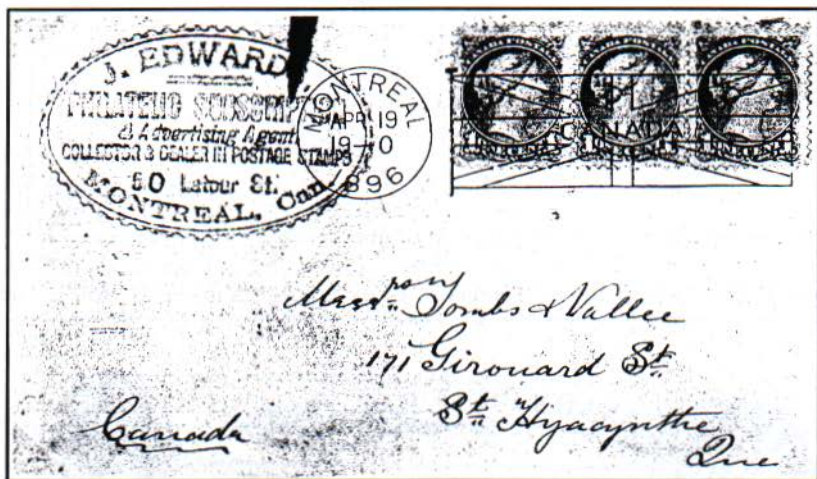 J. EDWARD
PHILATELIC SUBSCRIPTION
& Advertising Agent
COLLECTOR & DEALER IN POSTAGE STAMPS
50 Latour St.
MONTREAL, Can
MONTREAL
APR 19
19-0
896
CANADA
Messrs Tombs & Vallee
171 Girouard St.
St. Hyacynthe
Que
Canada